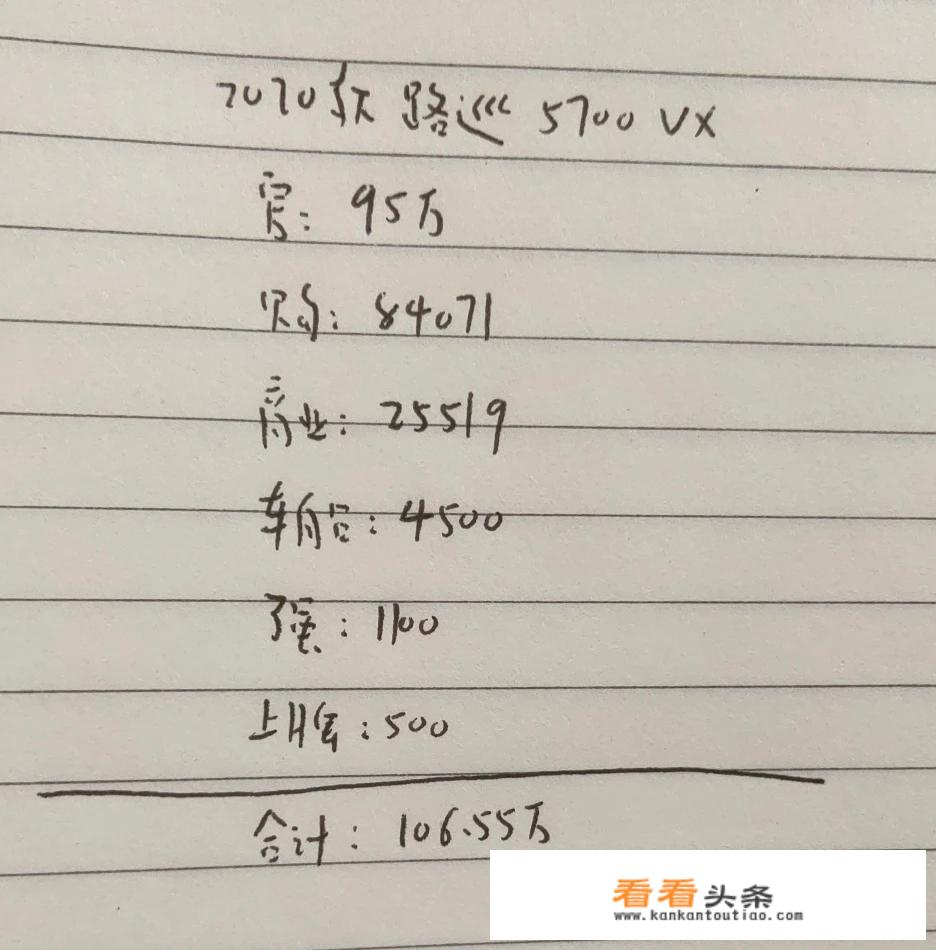 2020款 路巡 5700 VX
寡: 95万
购: 84071
商业: 25519
车船: 4500
强: 1100
上牌: 500
合计: 106.55万
看看头条
www.kankantoutiao.com